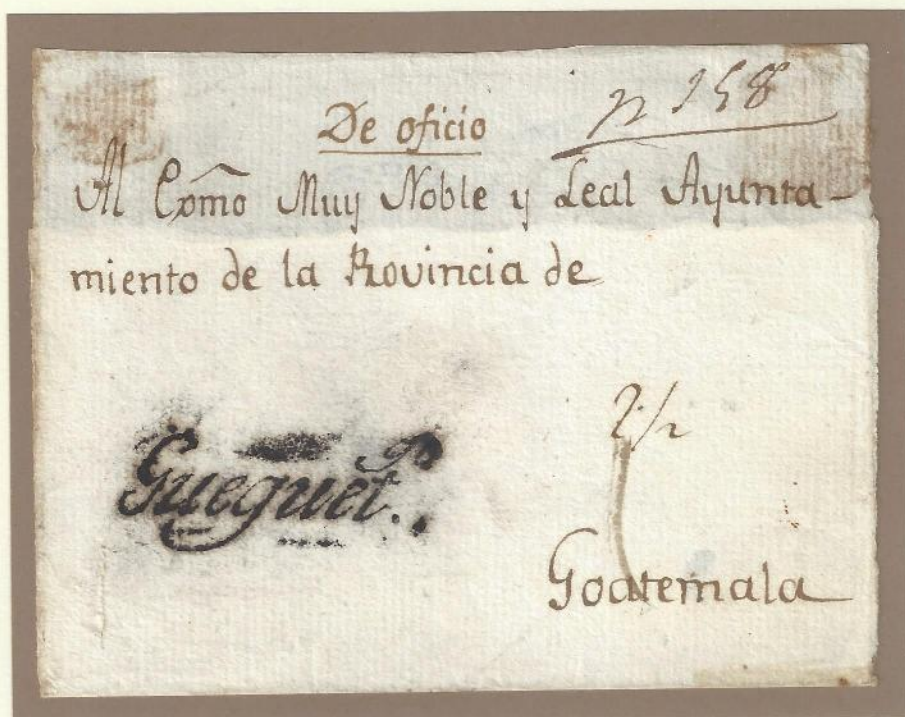 De oficio
n 158
Al Exmo Muy Noble y Leal Ayunta-
miento de la Provincia de
Gueguet.
2/2
Goatemala